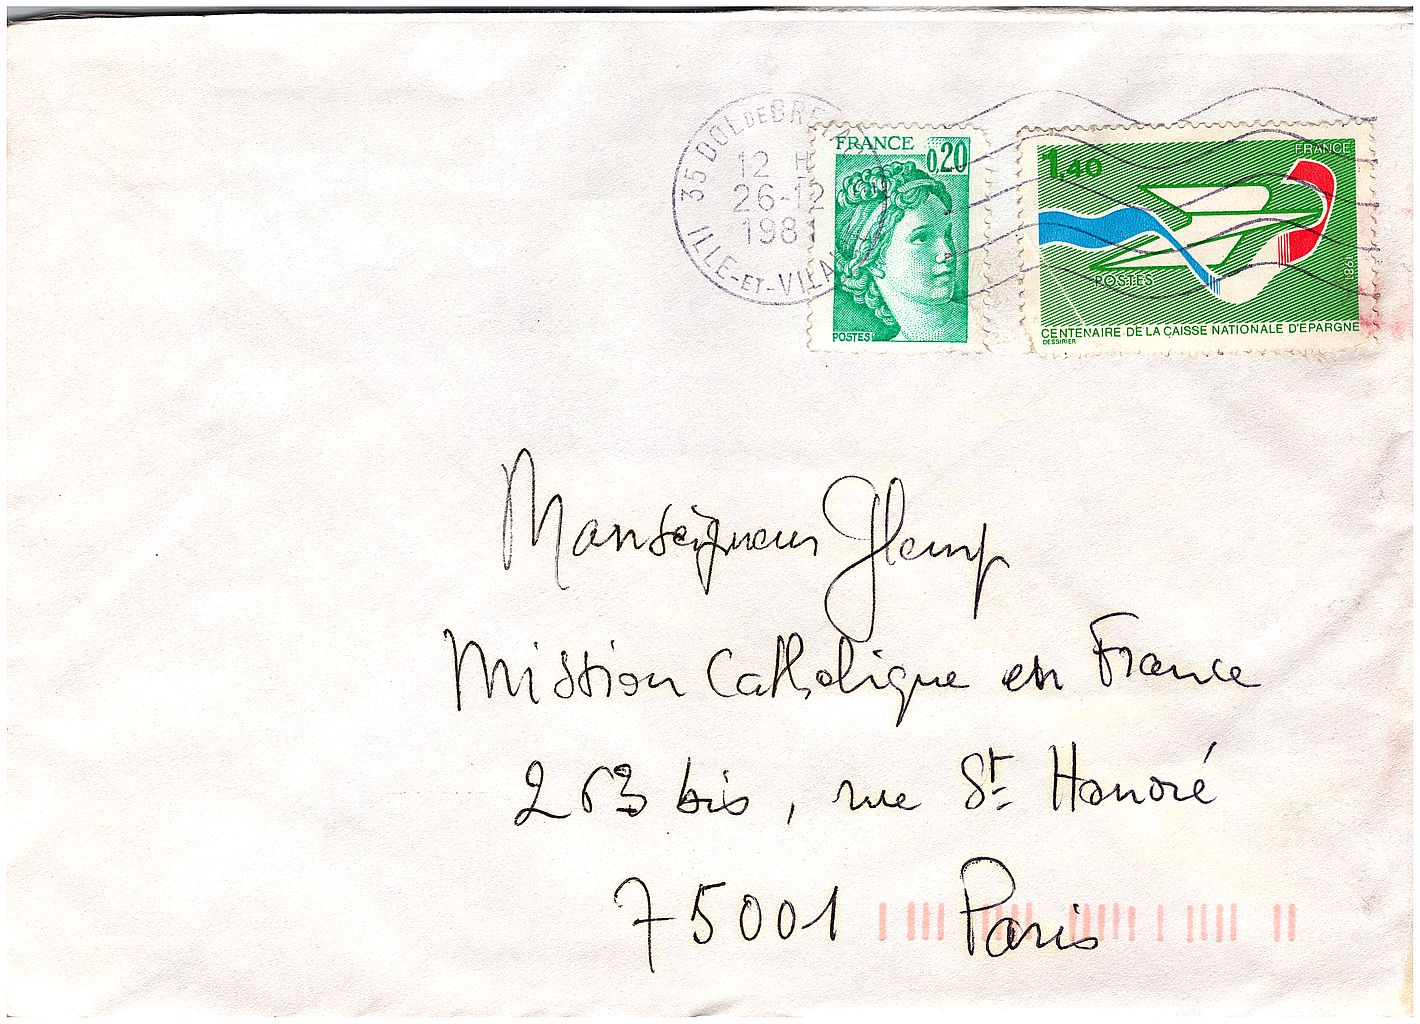 35 DOL DE BRE
12 H
26-12
198
ILLE-ET-VILA
FRANCE
0,20
POSTES
1,40
FRANCE
POSTES
CENTENAIRE DE LA CAISSE NATIONALE D'EPARGNE
DESSIRIER
Monseigneur Glemp
Mission Catholique en France
263 bis, rue St Honoré
75001 Paris